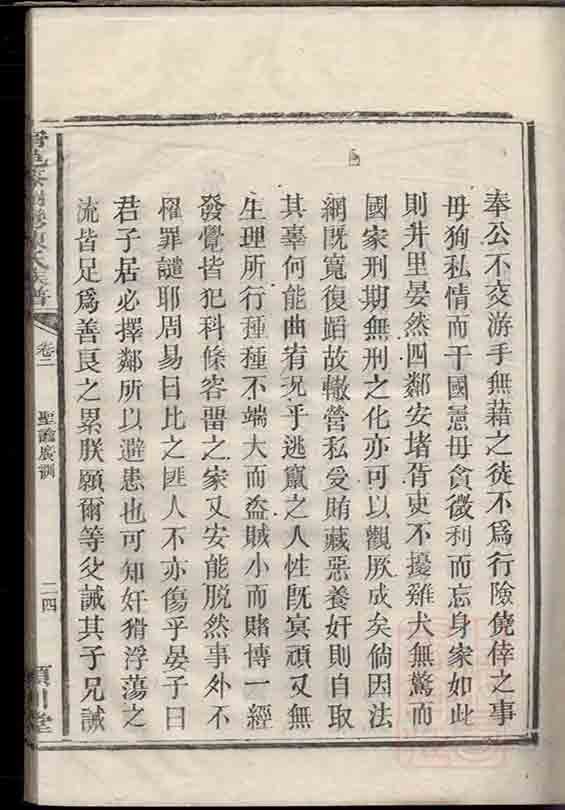 奉公不交游手無藉之徒不爲行險僥倖之事
毋狥私情而干國憲毋貪微利而忘身家如此
則井里晏然四鄰安堵胥吏不擾雞犬無驚而
國家刑期無刑之化亦可以觀厥成矣倘因法
網既寬復蹈故轍營私受賄藏惡養奸則自取
其辜何能曲宥况乎逃竄之人性既㝠頑又無
生理所行種種不端大而盜賊小而賭博一經
發覺皆犯科條容畱之家又安能脫然事外不
罹罪譴耶周易曰比之匪人不亦傷乎晏子曰
君子居必擇鄰所以避患也可知奸猾浮蕩之
流皆足爲善良之累朕願爾等父誡其子兄誡
氏族譜
卷二
聖諭廣訓
二四
潁川堂